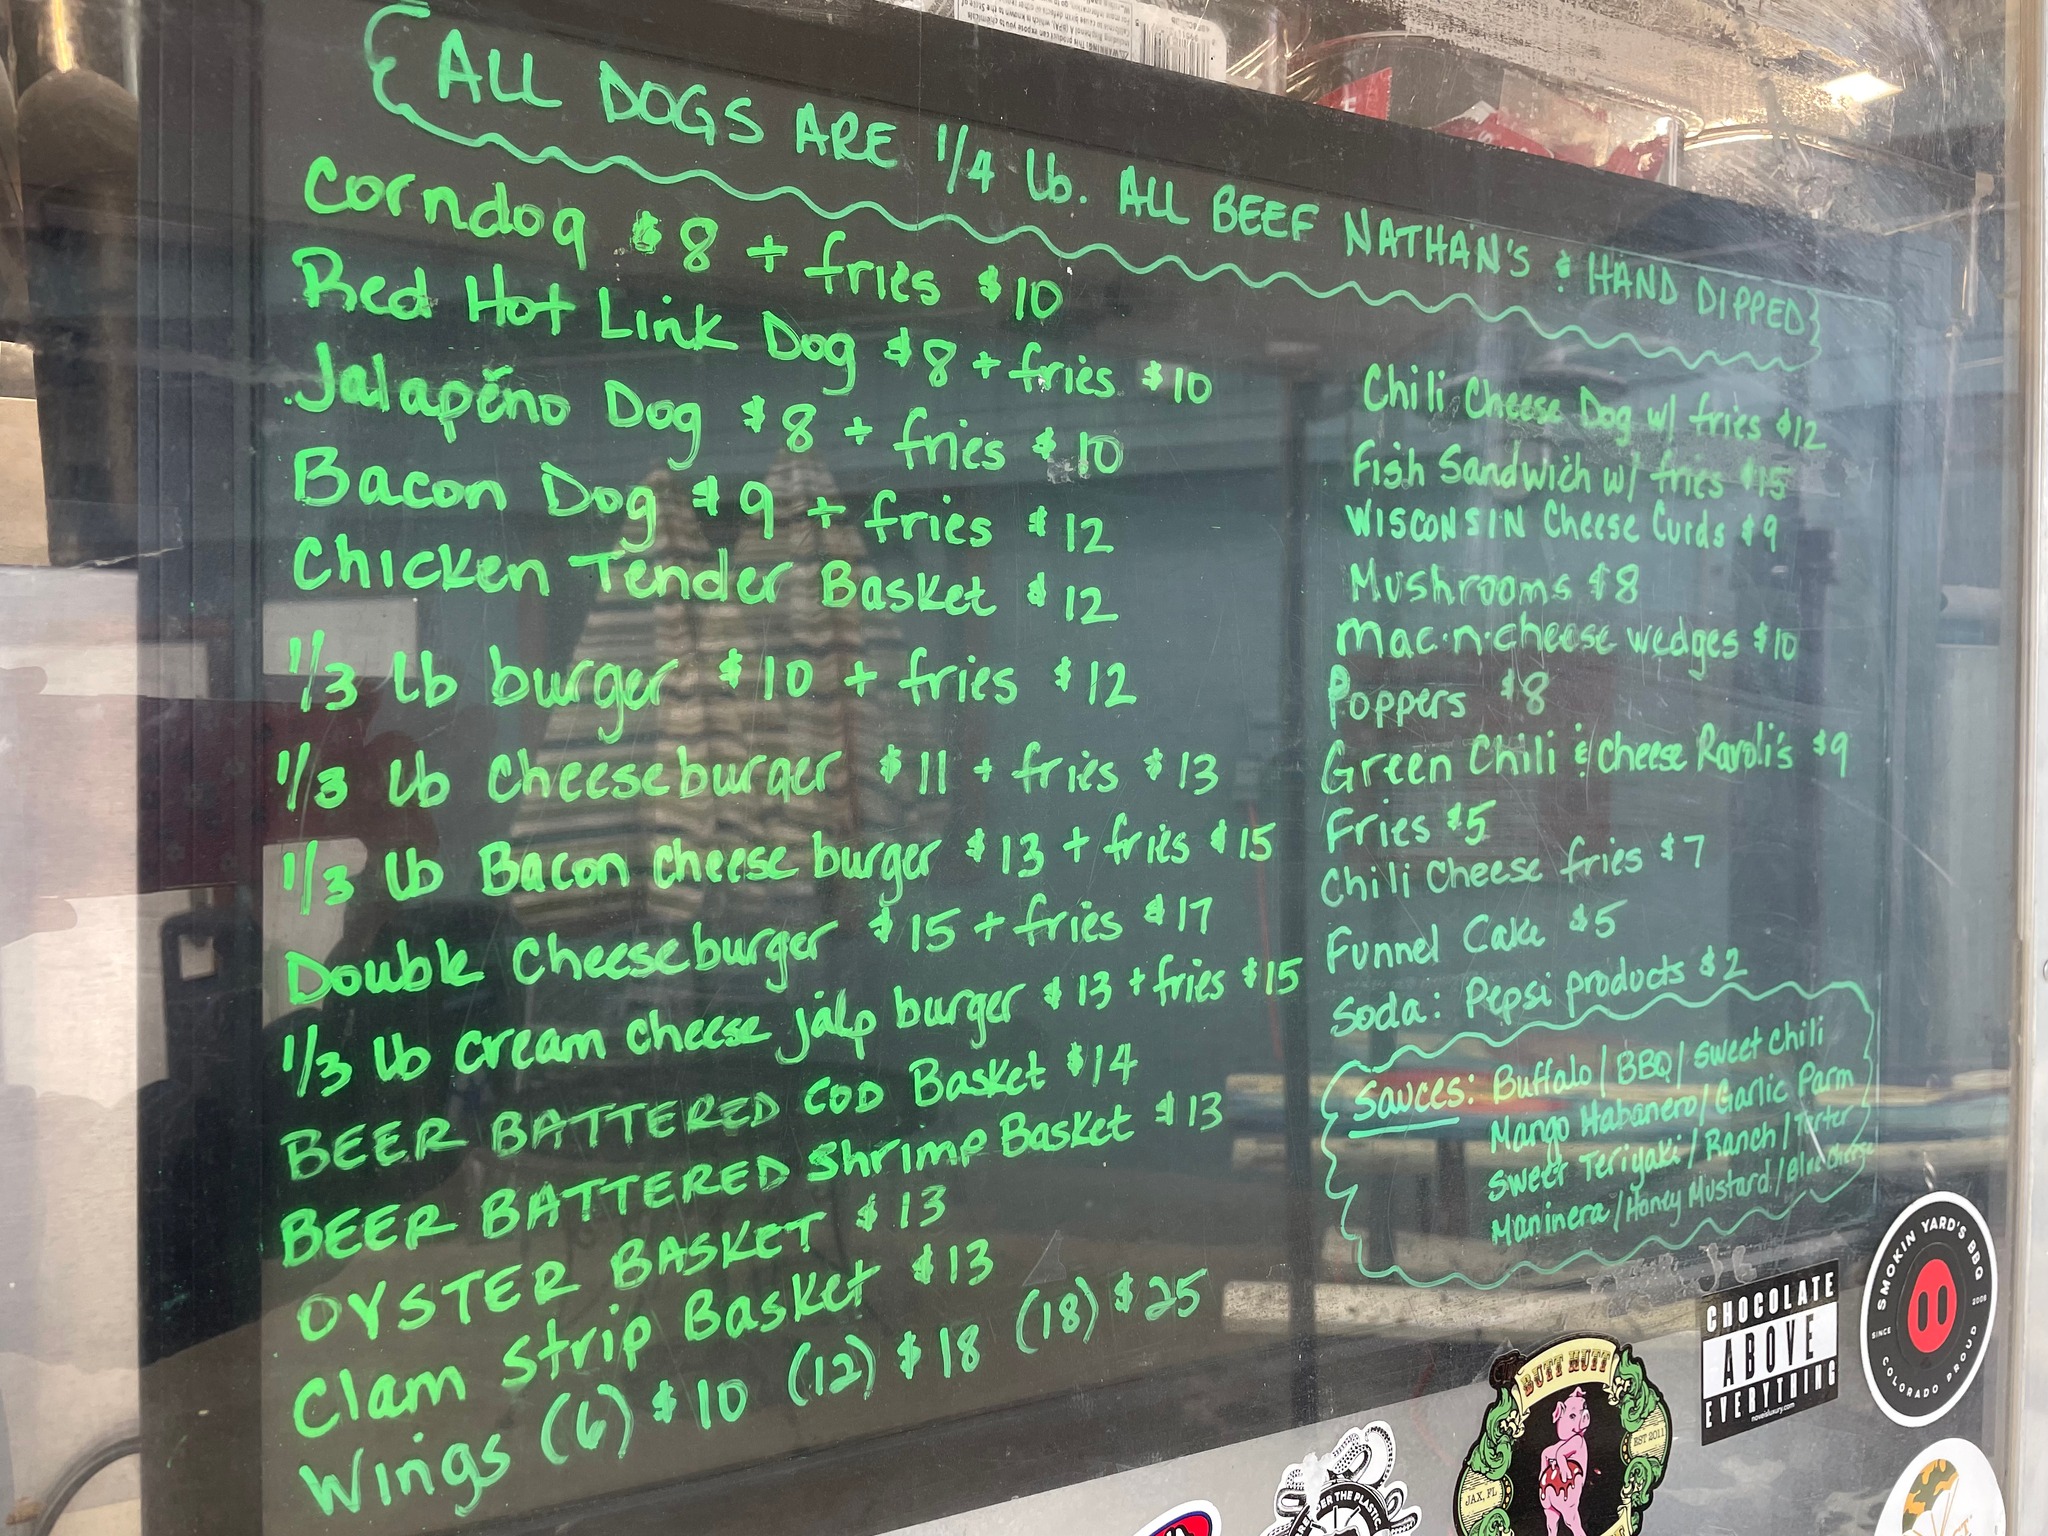 ALL DOGS ARE 1/4 lb. ALL BEEF NATHAN'S & HAND DIPPED
Corndog $8 + fries $10
Red Hot Link Dog $8 + fries $10
Jalapeño Dog $8 + fries $10
Bacon Dog $9 + fries $12
Chicken Tender Basket $12
1/3 lb burger $10 + fries $12
1/3 lb Cheeseburger $11 + fries $13
1/3 lb Bacon cheese burger $13 + fries $15
Double Cheeseburger $15 + fries $17
1/3 lb cream cheese jalp burger $13 + fries $15
BEER BATTERED COD Basket $14
BEER BATTERED Shrimp Basket $13
OYSTER BASKET $13
Clam Strip Basket $13
Wings (6) $10 (12) $18 (18) $25
Chili Cheese Dog w/ fries $12
Fish Sandwich w/ fries $15
WISCONSIN Cheese Curds $9
Mushrooms $8
Mac·n·cheese wedges $10
Poppers $8
Green Chili & Cheese Ravoli's $9
Fries $5
Chili Cheese fries $7
Funnel Cake $5
Soda: Pepsi products $2
Sauces: Buffalo/BBQ/Sweet Chili
Mango Habanero/Garlic Parm
Sweet Teriyaki/Ranch/Tarter
Maninera/Honey Mustard/Blue Cheese
SMOKIN YARD'S BBQ
SINCE 2008
COLORADO PROUD
CHOCOLATE
ABOVE
EVERYTHING
noveisluxury.com
BUTT HUTT
EST 2011
JAX, FL
THE PLASTIC